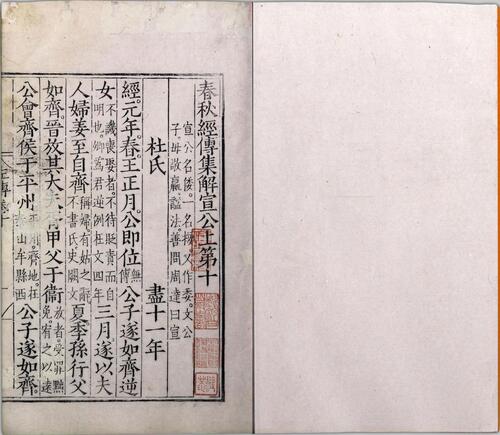 春秋經傳集解宣公上第十
宣公名倭。一名接又作委。文公
子。母敬嬴。謚法。善問周達曰宣
杜氏 盡十一年
經。元年春。王正月。公即位無傳公子遂如齊逆
女不譏喪娶者。不待貶責而自明也。卿為君逆例在文四年三月。遂以夫
人婦姜至自齊稱婦有姑之辭不書氏史闕文夏季孫行父
如齊。晉放其大夫胥甲父于衞放者。受罪黜免宥之以遠
公會齊侯于平州齊地。在山牟縣西公子遂如齊。